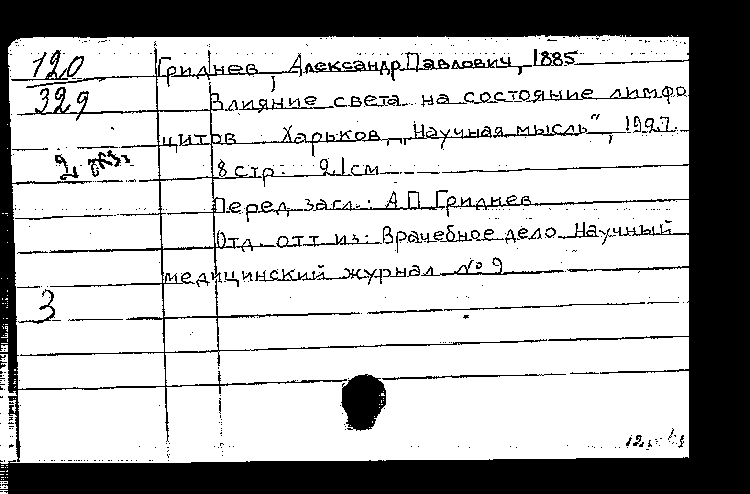 120
329
2 экз.
3
Гриднев, Александр Павлович, 1885
Влияние света на состояние лимфо
цитов Харьков, „Научная мысль", 1927.
8 стр. 21 см
Перед загл.: А П Гриднев
Отд. отт из: Врачебное дело Научный
медицинский журнал № 9